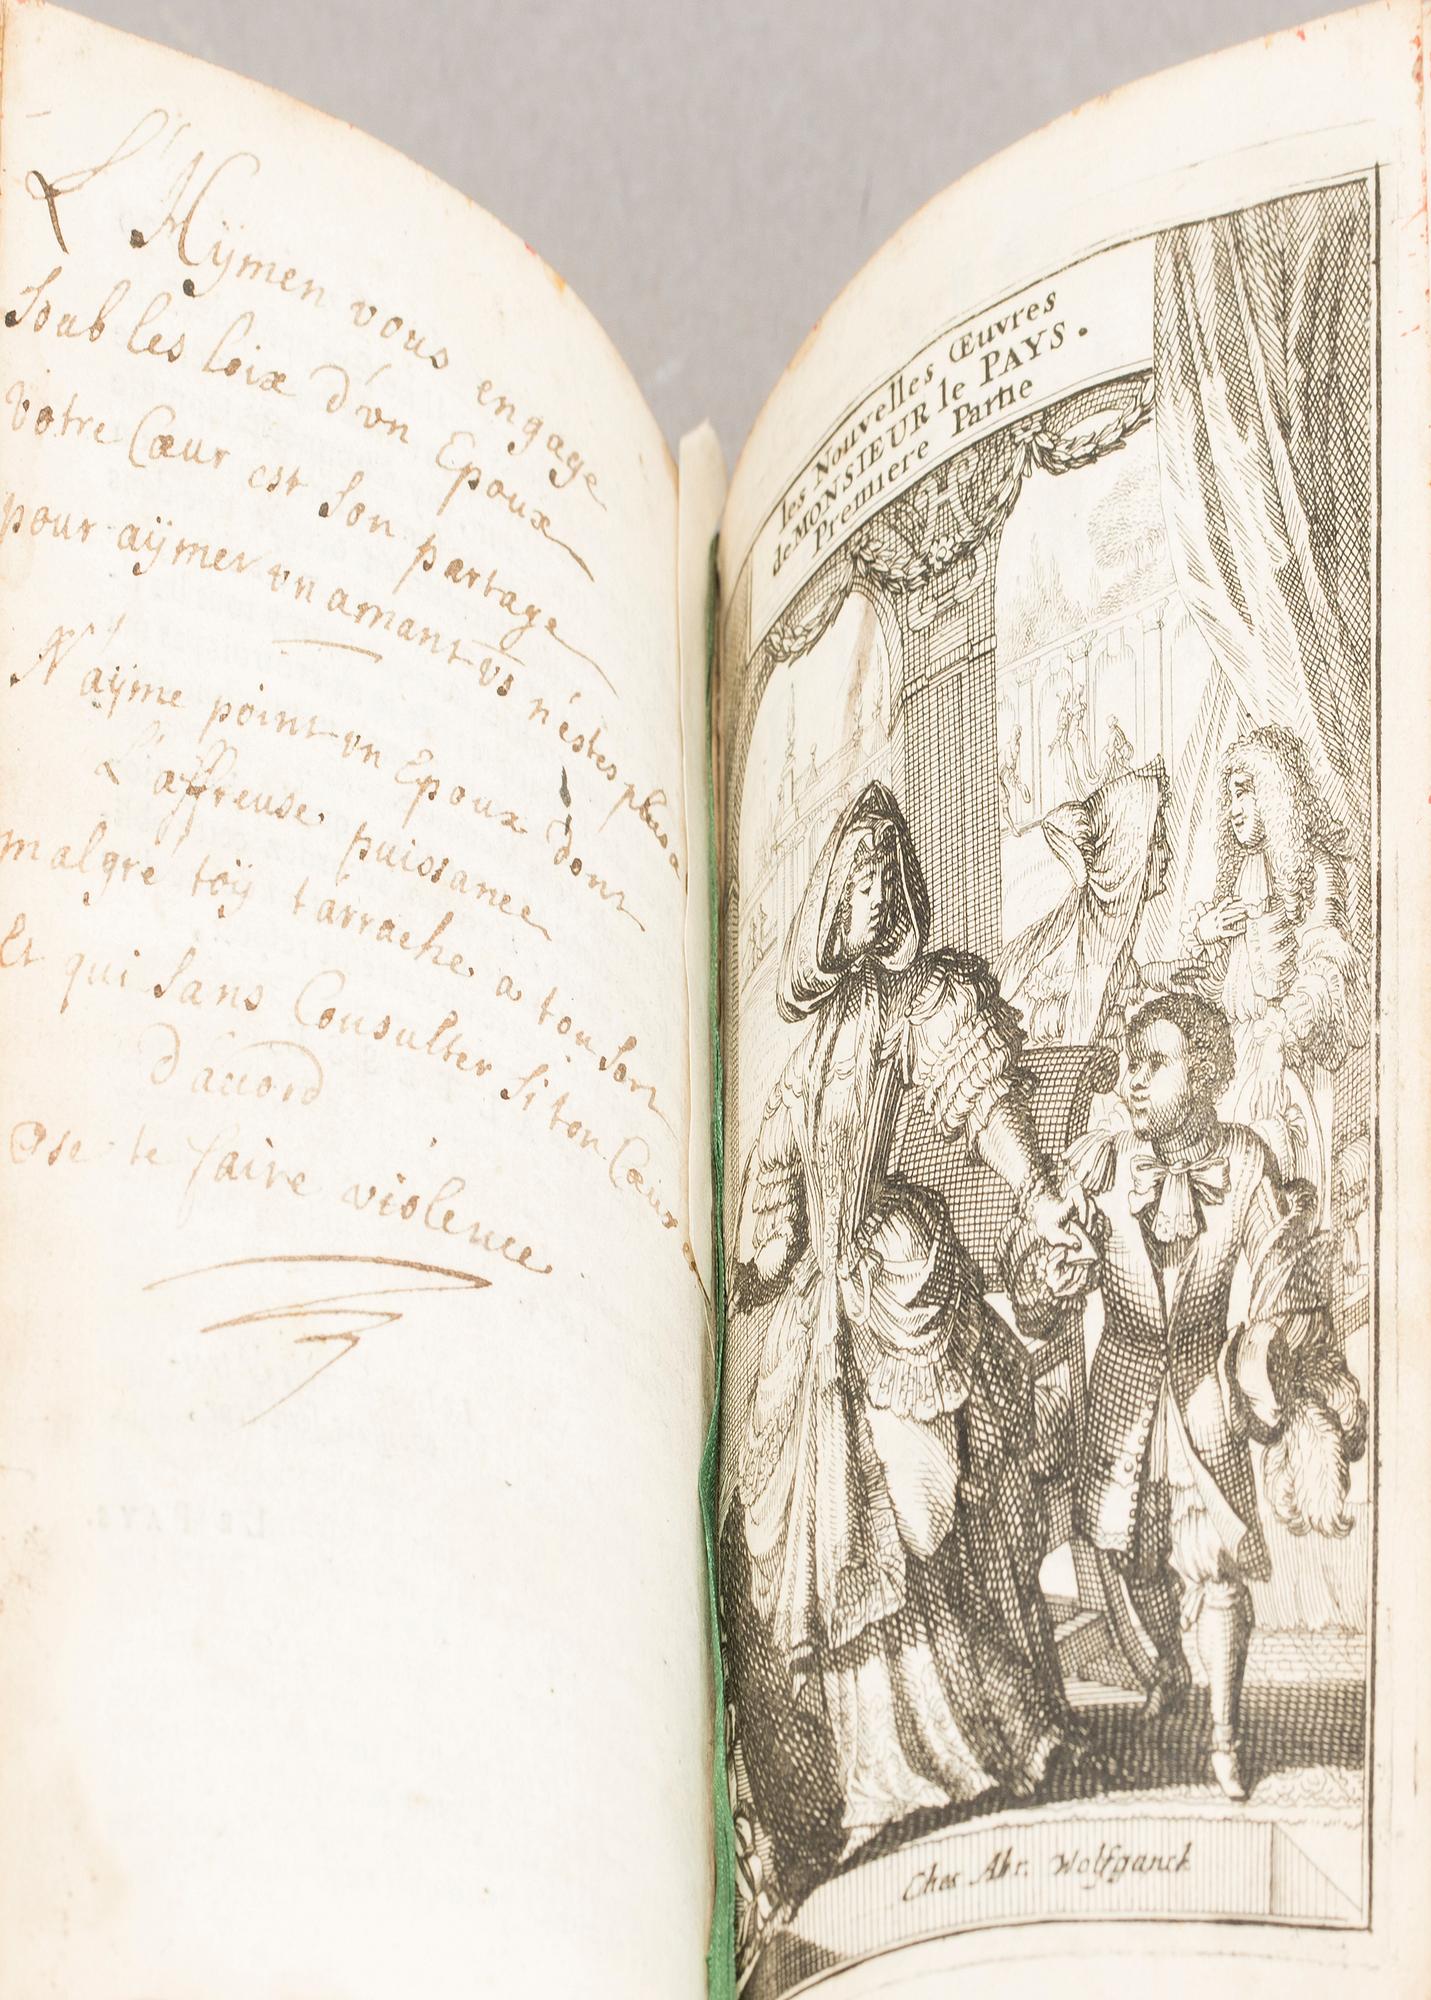 L'Hÿmen vous engage
Soub les loix d'vn Epoux
Votre Cœur est Son partage
pour aÿmer vn amant vs n'éstes plus a
N'aÿme point vn Epoux dont
L'affreuse puissance
malgré toÿ t'arrache a ton Sort
Et qui Sans Consulter Si ton Cœur
d'accord
Ose te faire violence
LE PAYS.
les Nouvelles Œuvres
de MONSIEUR le PAYS.
Premiere Partie
Ches Abr. Wolfganck